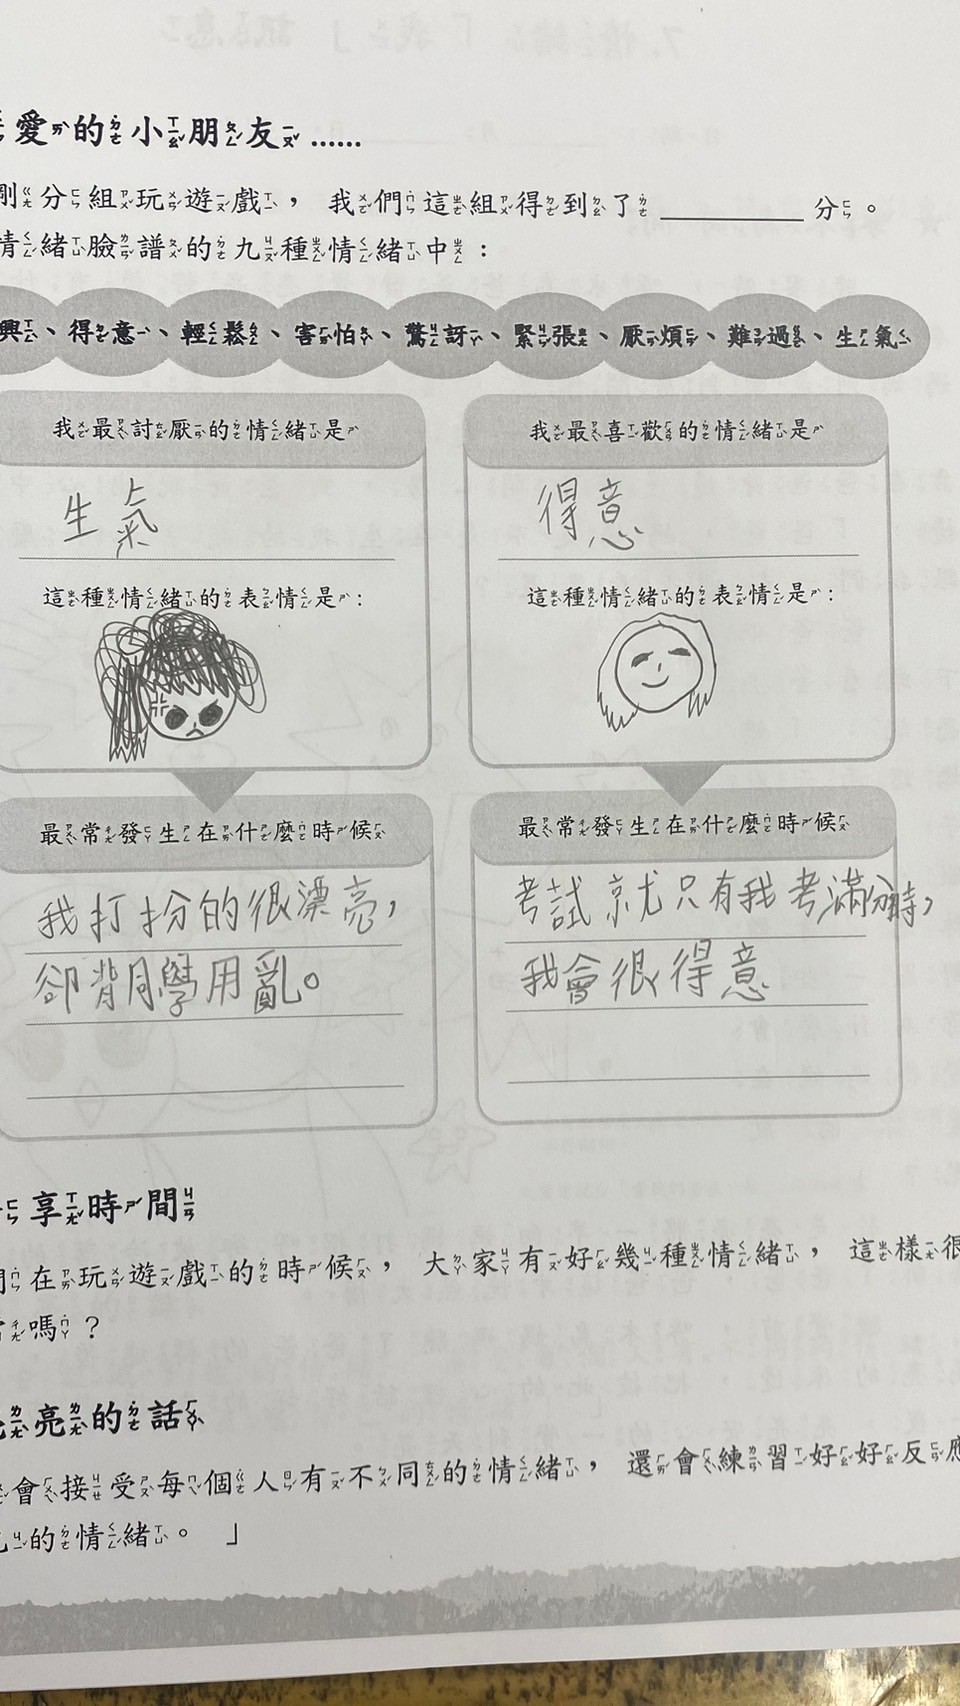 愛的小朋友……
剛分組玩遊戲，我們這組得到了________分。
情緒臉譜的九種情緒中：
興、得意、輕鬆、害怕、驚訝、緊張、厭煩、難過、生氣
我最討厭的情緒是
生氣
這種情緒的表情是：
最常發生在什麼時候
我打扮的很漂亮，
卻背同學用亂。
我最喜歡的情緒是
得意
這種情緒的表情是：
最常發生在什麼時候
考試就尤只有我考滿分時，
我會很得意
享時間
們在玩遊戲的時候，大家有好幾種情緒，這樣很
嗎？
亮的話
會接受每個人有不同的情緒，還會練習好好反應
的情緒。」